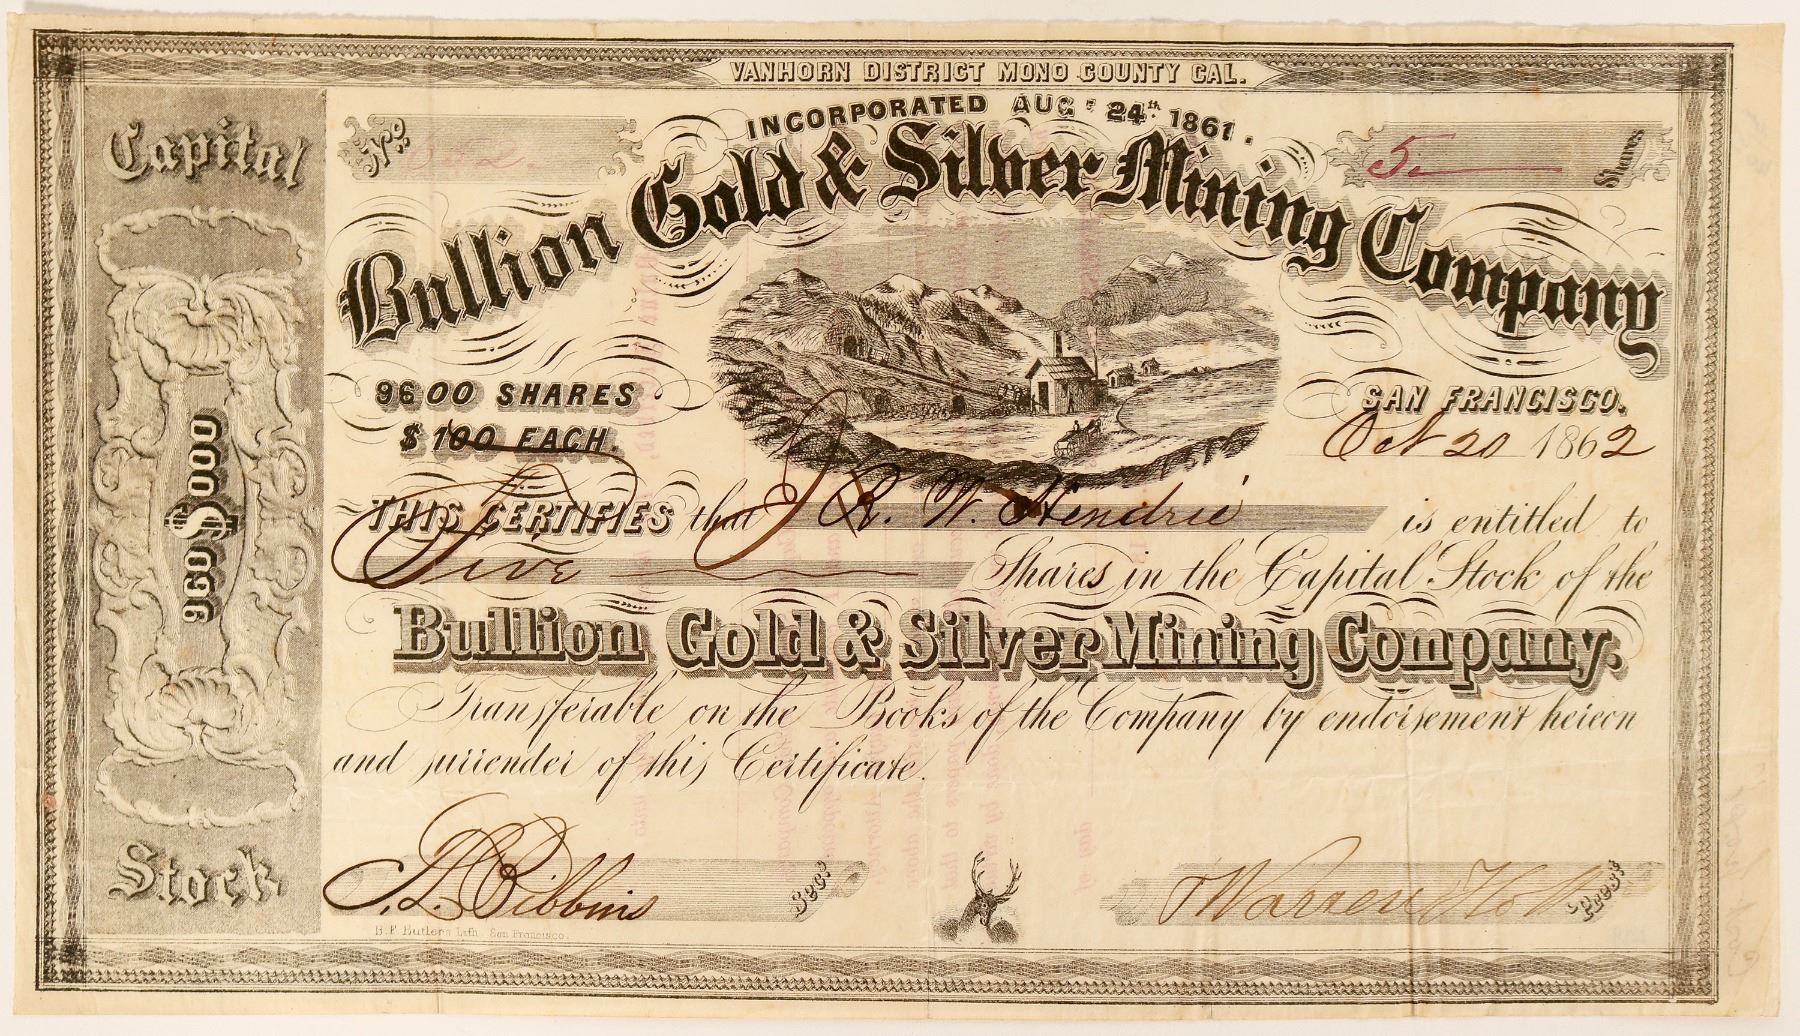 VANHORN DISTRICT MONO COUNTY CAL.
INCORPORATED AUG: 24th 1861.
No
5
Shares
Bullion Gold & Silver Mining Company
Capital
$960000
Stock
9600 SHARES
$100 EACH.
SAN FRANCISCO.
Oct 20 1862
THIS CERTIFIES that R. W. Hendrie is entitled to
Five Shares in the Capital Stock of the
Bullion Gold & Silver Mining Company.
Transferable on the Books of the Company by endorsement hereon
and surrender of this Certificate.
Bibbins Secy
Warren Holt Prest
B. F. Butler's Lith. San Francisco.